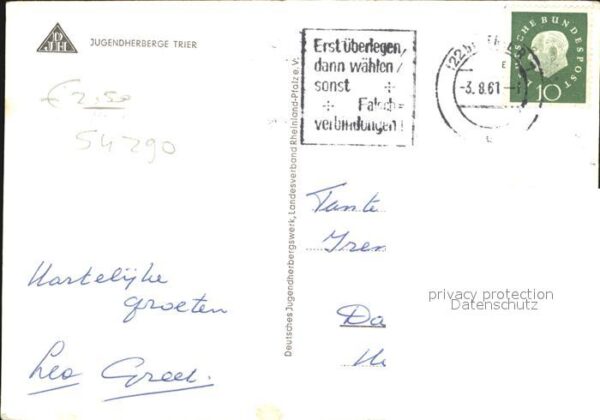 DJH
JUGENDHERBERGE TRIER
€ 2.50
54290
Hartelijke
groeten
Leo
Deutsches Jugendherbergswerk, Landesverband Rheinland-Pfalz e. V.
Erst überlegen,
dann wählen,
sonst
Falsch-
verbindungen!
(22b)
-3.8.61-
DEUTSCHE BUNDESPOST
10
Tante
Iren
Da
privacy protection
Datenschutz